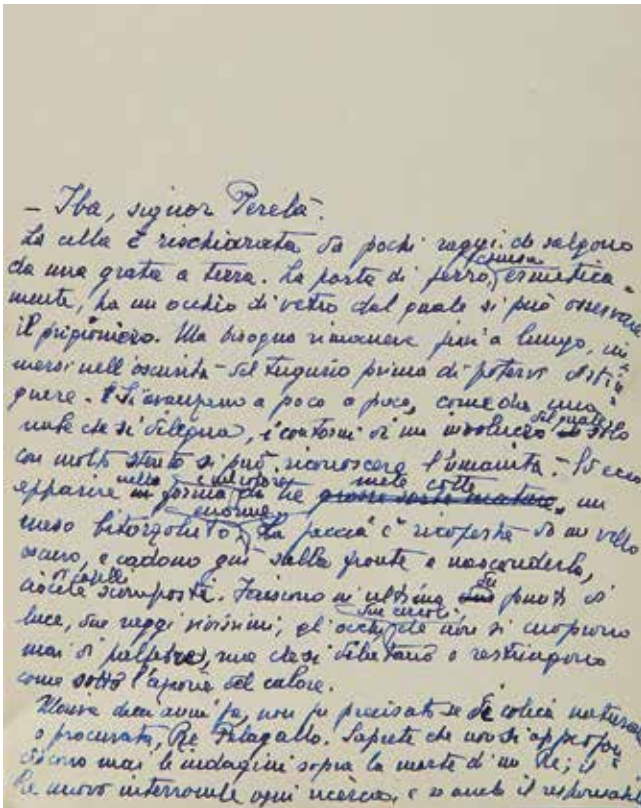 – Iba, signor Perelà.
La cella è rischiarata da pochi raggi che salgono
da una grata a terra. La porta di ferro, chiusa ermetica-
mente, ha un occhio di vetro dal quale si può osservare
il prigioniero. Ma bisogna rimanere fini a lungo, im-
mersi nell'oscurità del tugurio prima di potervi distin-
guere. E si avanzano a poco a poco, come da una
nube che si dilegua, i contorni di un involucro del quale solo
con molto stento si può riconoscere l'umanità. Ed ecco
apparire nella forma e nel colore di tre mele cotte, un
naso bitorzoluto enorme. La faccia è ricoperta da un vello
oscuro, e cadono giù sulla fronte a nasconderla,
ciocche di capelli scomposti. Feriscono in ultimo due punti di
luce, due raggi vivissimi, due cerchi: gli occhi che non si cuoprono
mai di palpebre, ma che si dilatano e restringono
come sotto l'azione del calore.
Moriva dieci anni fa, non fu precisato se di colica naturale
o procurata, Re Pelagallo. Sapete che non si approfon-
discono mai le indagini sopra la morte di un Re; il
Re nuovo interrompe ogni ricerca, e se anche il responsabile